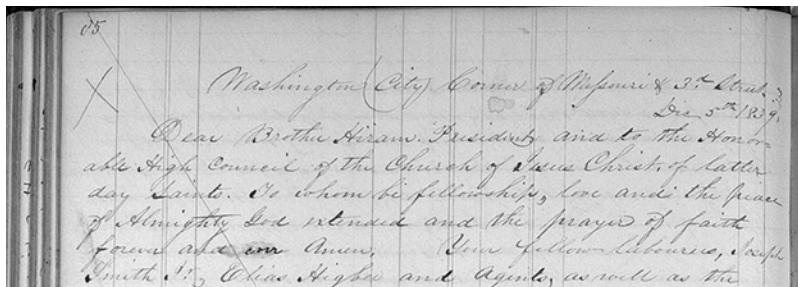 85
Washington City Corner of Missouri & 3.d Street
Dec 5th 1839.
Dear Brother Hiram. President, and to the Honor-
able High Council of the Church of Jesus Christ, of latter
day Saints. To whom be fellowship, love and the peace
of Almighty God extended and the prayer of faith
forever and ever Amen. Your fellow labourers, Joseph
Smith Jr., Elias Higbee and Agents, as well as the